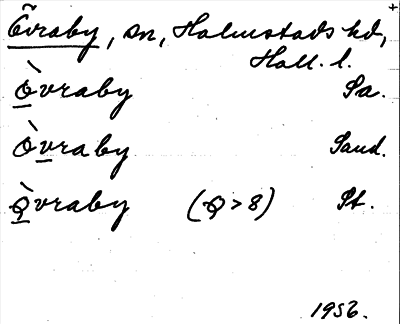 +
Övraby, sn, Halmstads hd,
Hall. l.
Òvraby Sa.
Òvraby Sand.
Q̀vraby (Q > 8) St.
1956.